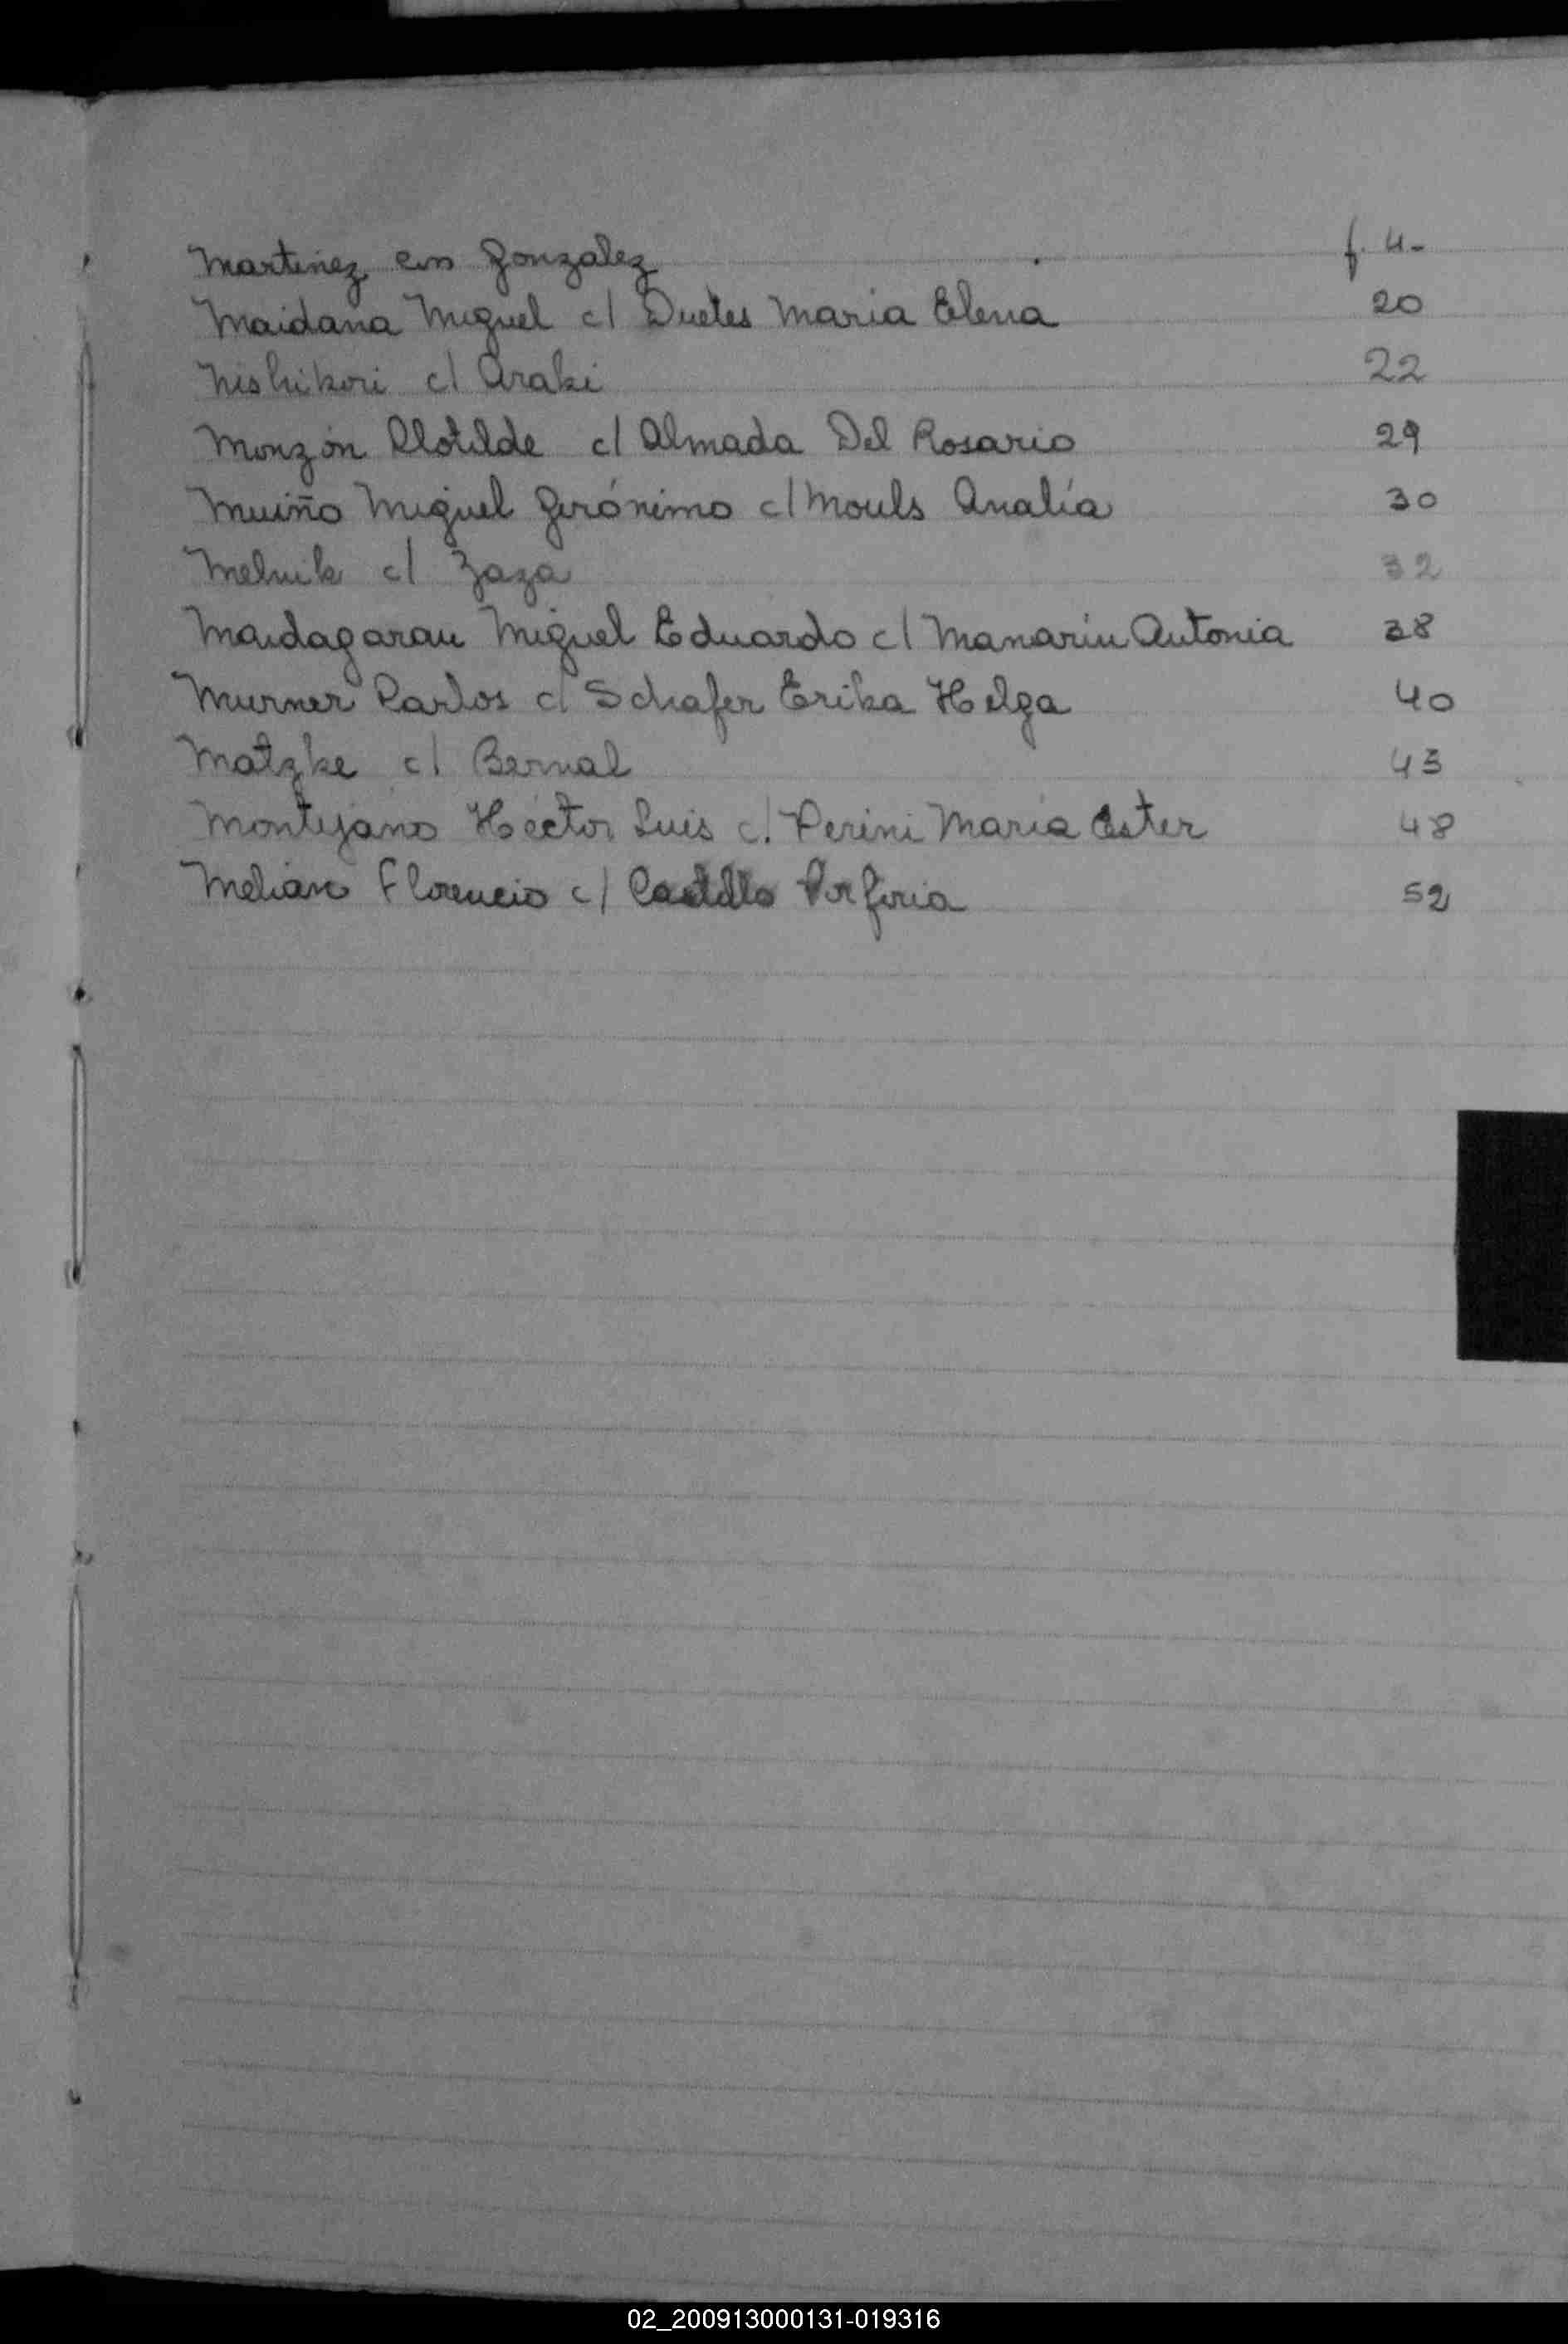 Martinez con Gonzalez f. 4-
Maidana Miguel c/ Duetes Maria Elena 20
Nishikori c/ Araki 22
Monzón Clotilde c/ Almada Del Rosario 29
Muiño Miguel Gerónimo c/ Mouls Analía 30
Melnik c/ Zaza 32
Maidagarau Miguel Eduardo c/ Manarin Antonia 38
Murner Carlos c/ Schafer Erika Helga 40
Matzke c/ Bernal 43
Montejano Héctor Luis c/. Perini Maria Ester 48
Melians Florencio c/ Castillo Porfiria 52
02_200913000131-019316